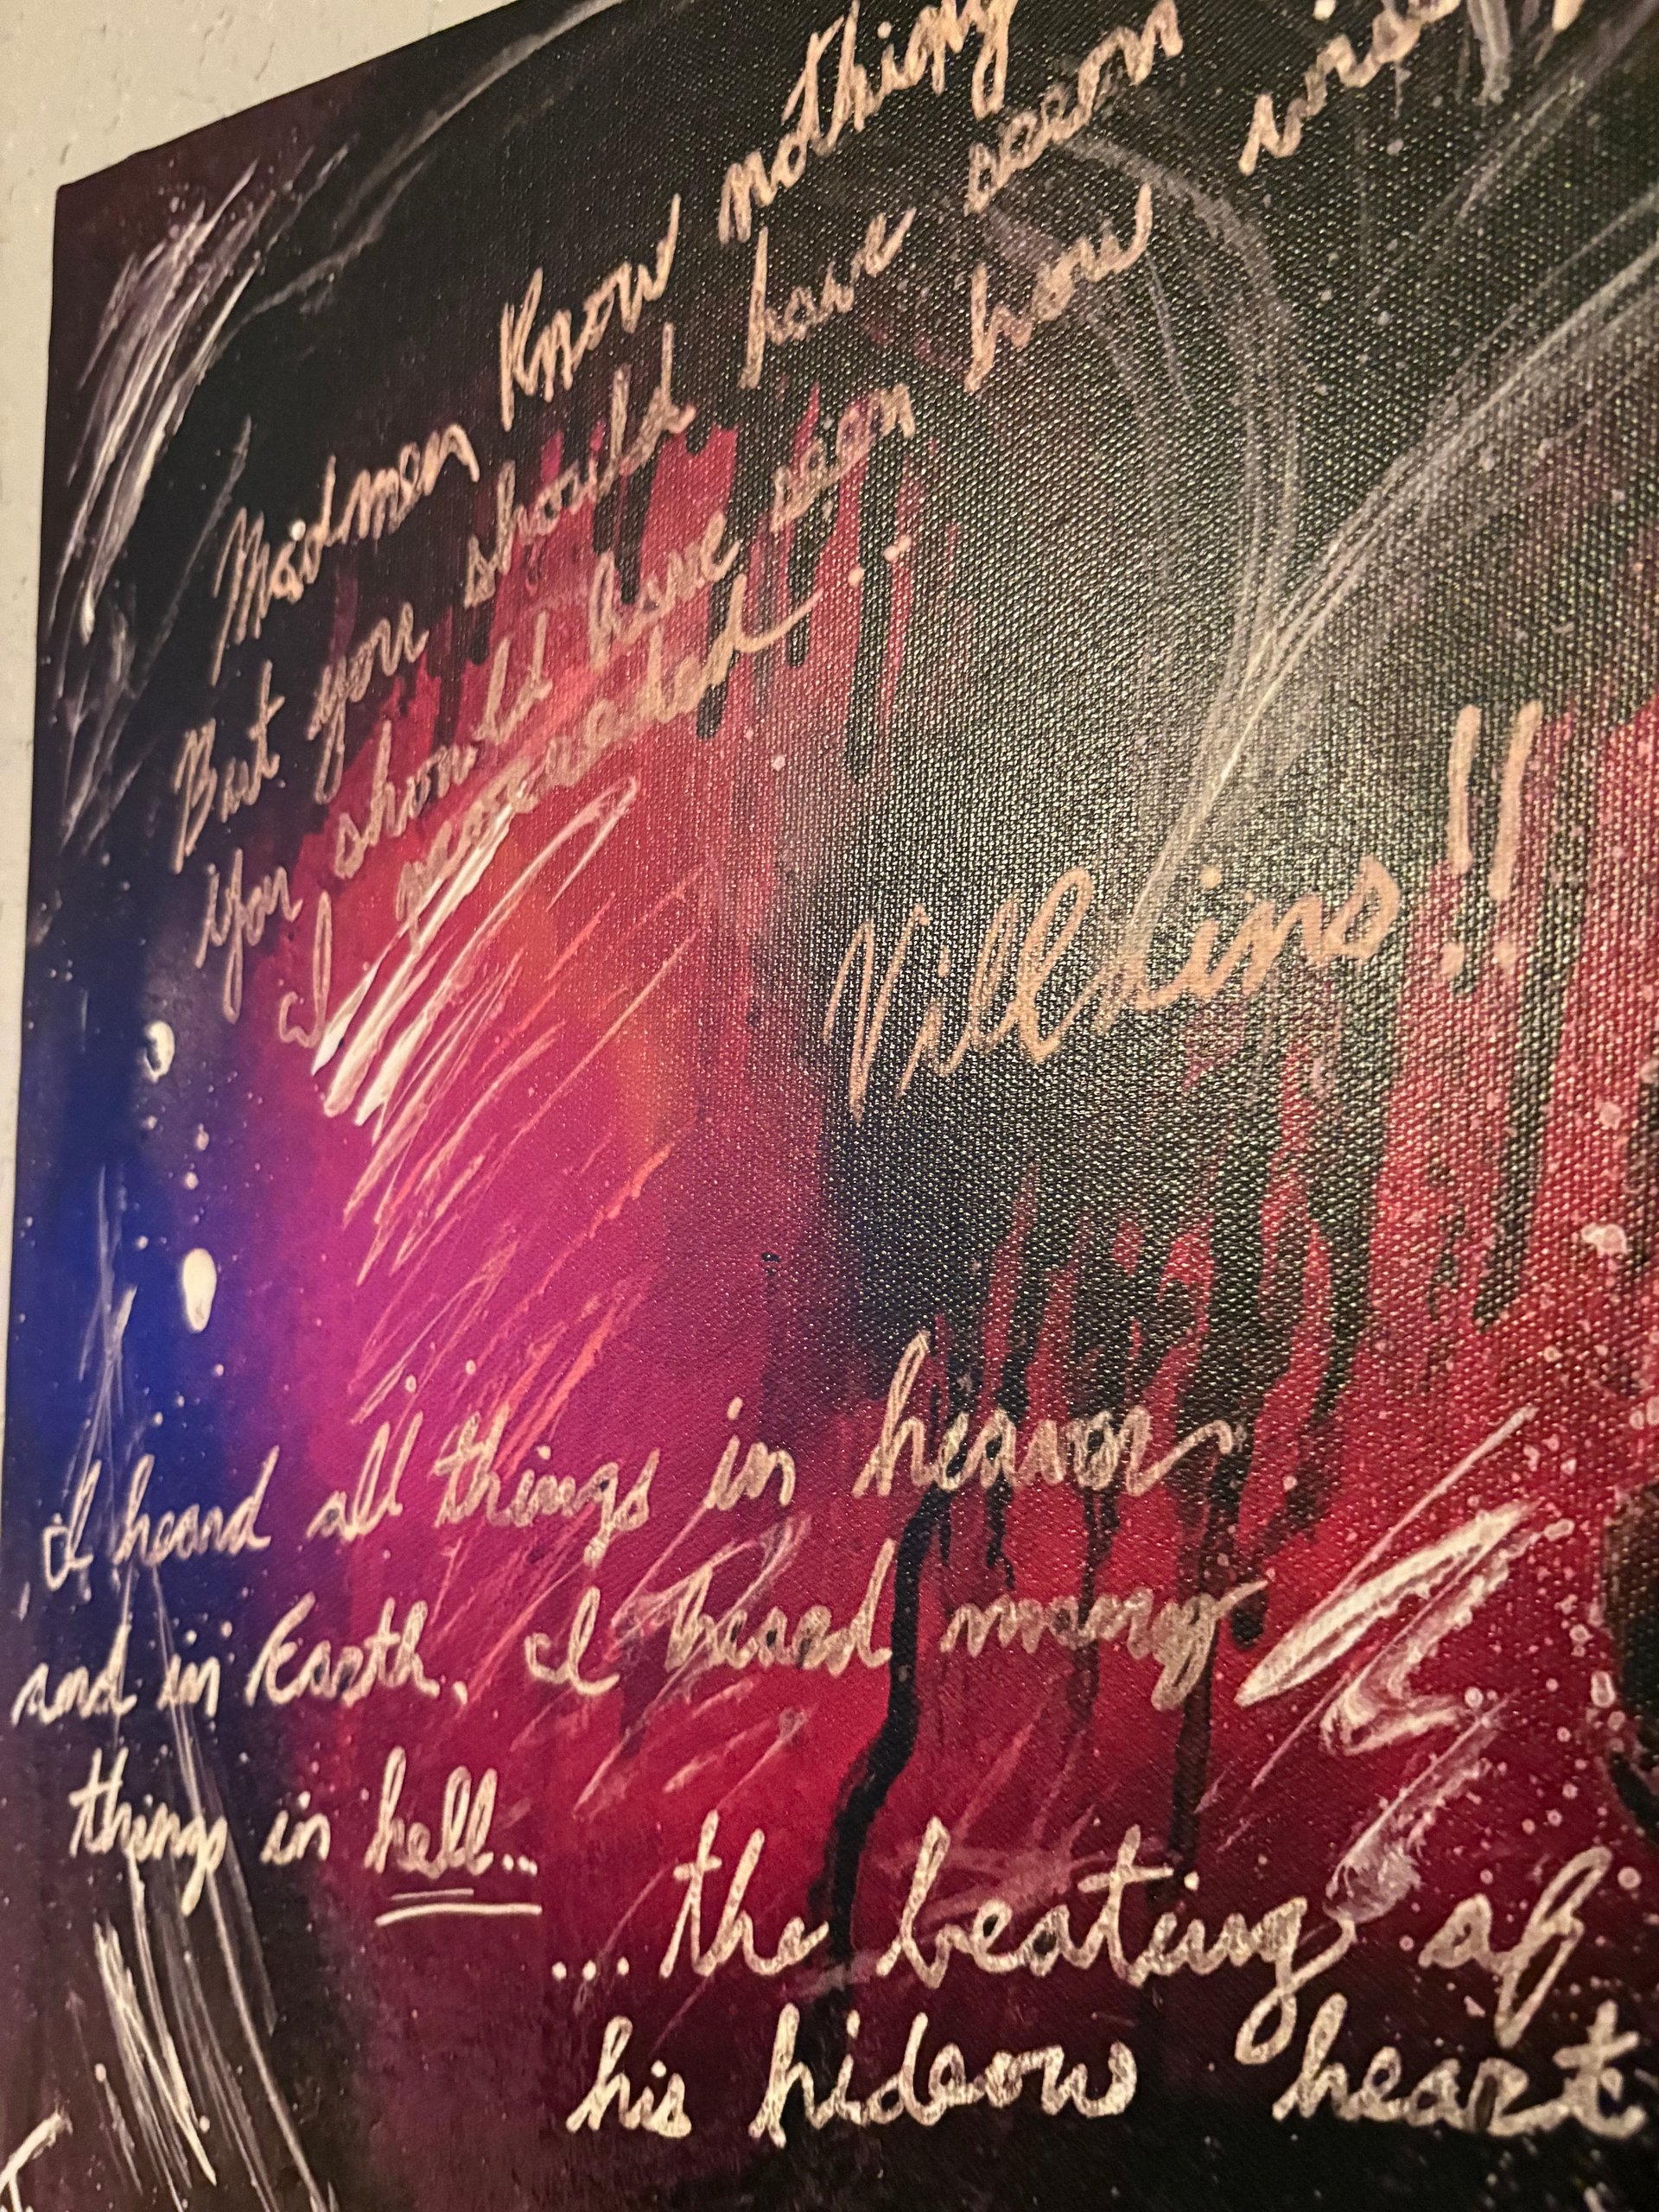 Madmen Know nothing
But you should have seen
you should have seen how wisely
I proceeded..
Villains!!
I heard all things in heaven
and in Earth, I heard many
things in hell...
...the beating of
his hideous heart